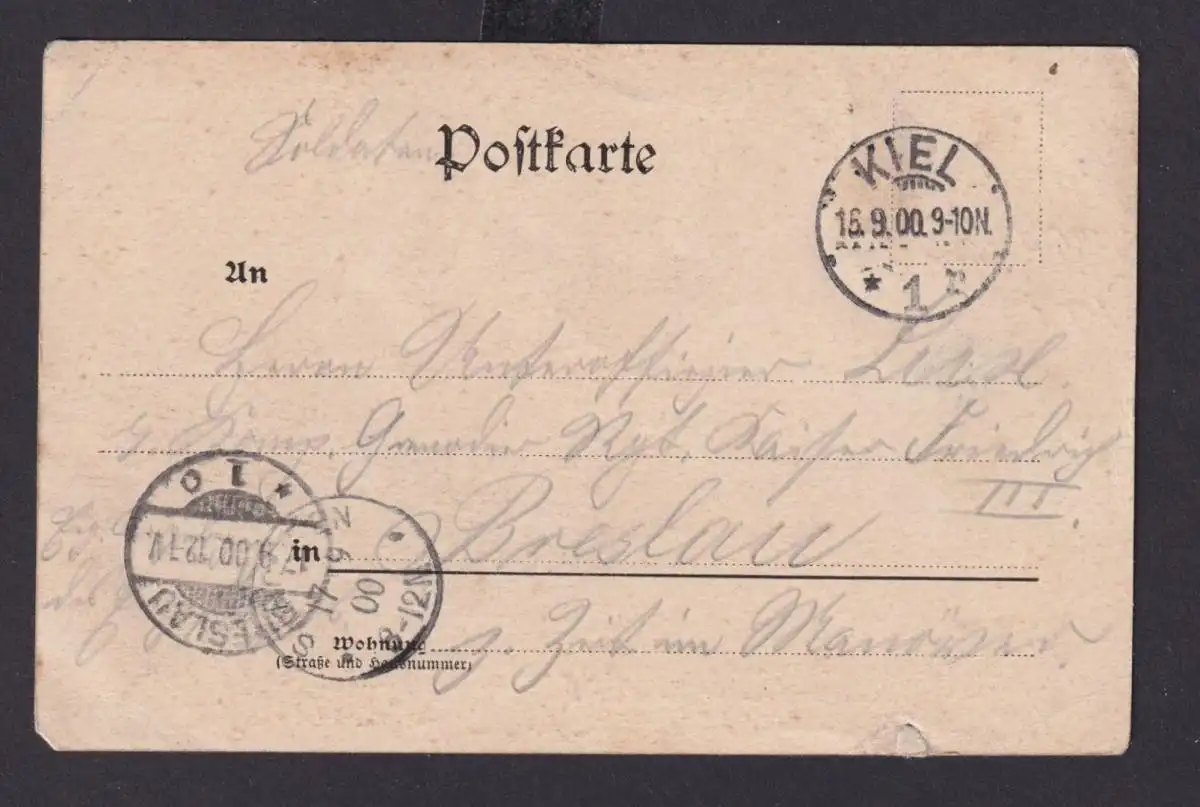 Soldaten Postkarte
KIEL
16.9.00.9-10N.
* 1 n
An
Herrn Unteroffizier
Komp. Grenadier Rgt. Kaiser Friedrich
III.
in Breslau
Wohnung z. Zeit im Manöver.
(Straße und Hausnummer)
* 1 c
17.9.00.12-1V.
BRESLAU
17 9
00
8-12N